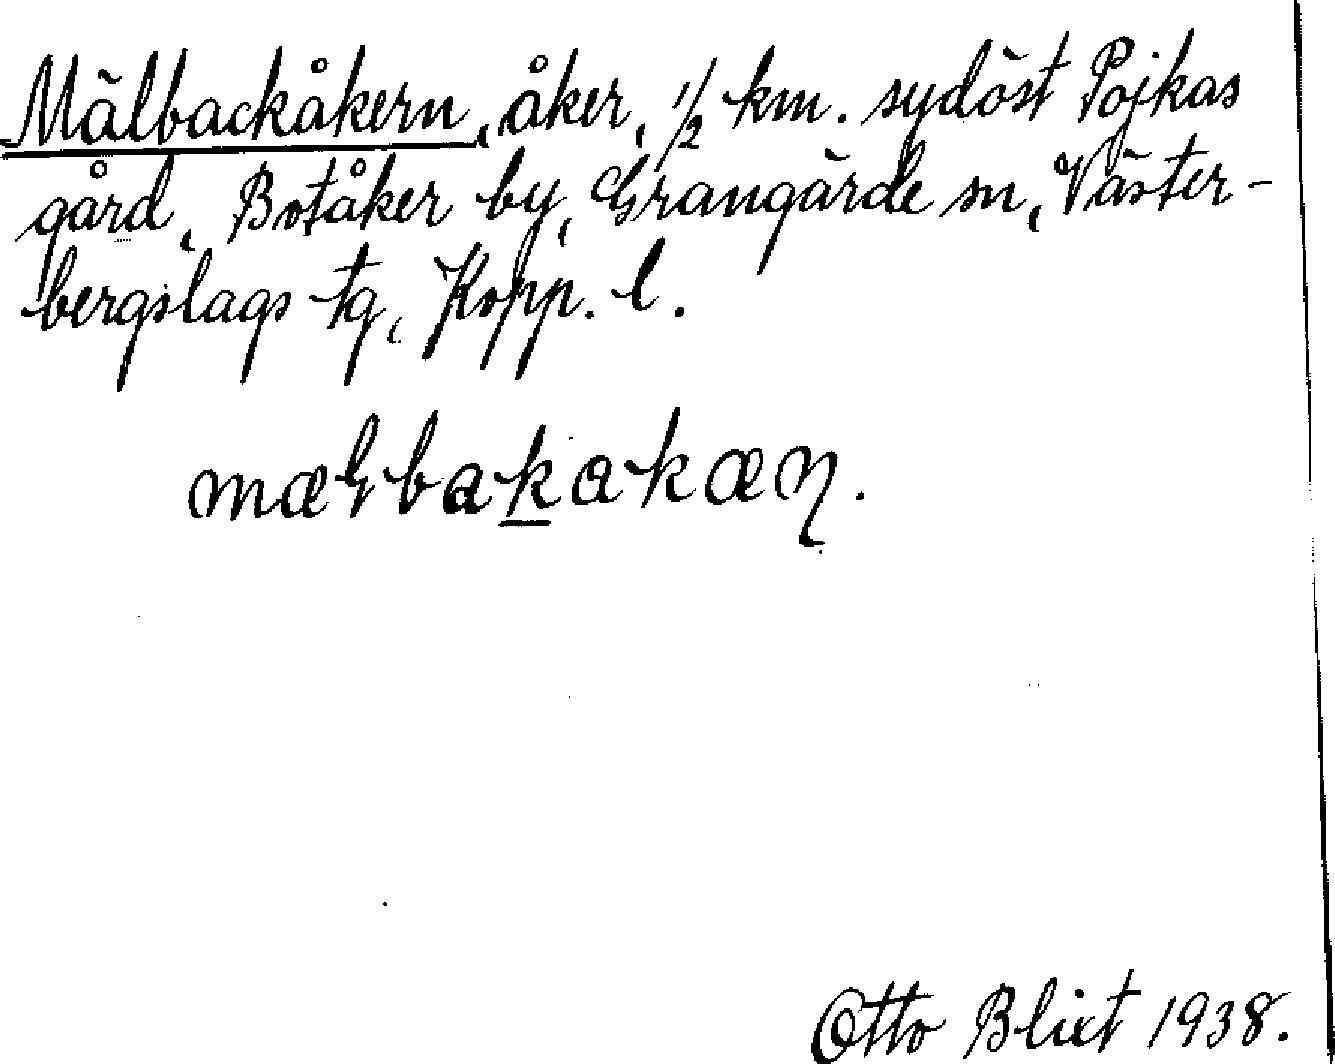 Mälbackåkern, åker, 1/2 km. sydöst Pojkas
gård, Botåker by, Grangärde sn, Väster-
bergslags tg, Kopp. l.
mæɫbakakæn.
Otto Blixt 1938.